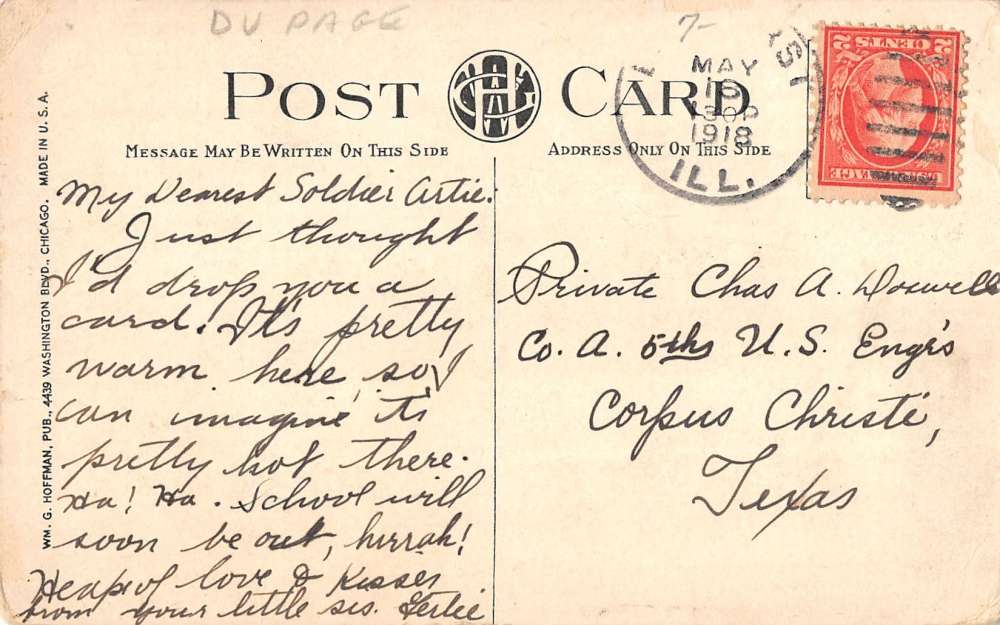 DU PAGE
7-
POST CARD
MESSAGE MAY BE WRITTEN ON THIS SIDE
ADDRESS ONLY ON THIS SIDE
MAY
10
130P
1918
ILL.
2 CENTS 2
WM. G. HOFFMAN, PUB., 4439 WASHINGTON BLVD., CHICAGO. MADE IN U. S. A.
My Dearest Soldier Artie:
Just thought
I'd drop you a
card. It's pretty
warm here, so I
can imagine it's
pretty hot there.
Ha! Ha. School will
soon be out, hurrah!
Heaps of love & Kisses
from your little sis.
Private Chas A.
Co. A. 5th U.S. Engrs
Corpus Christi,
Texas